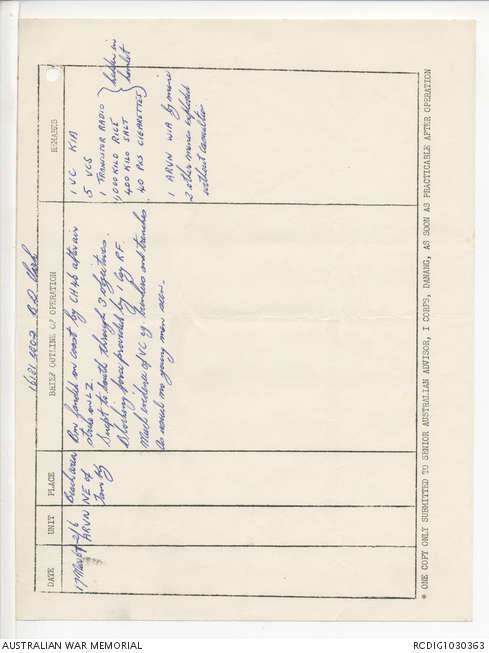 R D Clark
DATE UNIT PLACE BRIEF OUTLINE OF OPERATION REMARKS
17 Mar 2/6 ARVN
Beach area NE of Tam Ky
Bn landed on coast by CH46 after air
strike on LZ
Swept to south through 3 objectives.
Blocking force provided by 1 Coy RF.
Much evidence of VC eg bunkers and trenches
As usual no young men seen.
1 VC KIA
5 VCS
1 TRANSISTOR RADIO
4,000 KILO RICE
400 KILO SALT
40 PKS CIGARETTES
hidden in
hamlet
1 ARVN WIA by mine
2 other mines exploded
without casualties
* ONE COPY ONLY SUBMITTED TO SENIOR AUSTRALIAN ADVISOR, I CORPS, DANANG, AS SOON AS PRACTICABLE AFTER OPERATION
AUSTRALIAN WAR MEMORIAL
RCDIG1030363